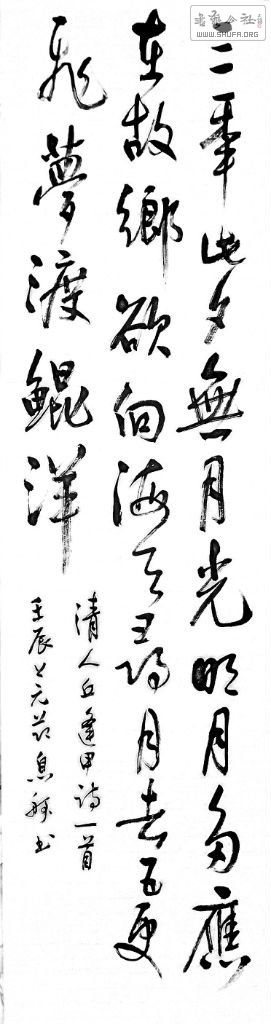 書法公社
WWW.SHUFA.ORG
三年此夕無月光明月多應
在故鄉欲向海天尋月去五更
飛夢渡鯤洋
清人丘逢甲詩一首
壬辰上元節息书